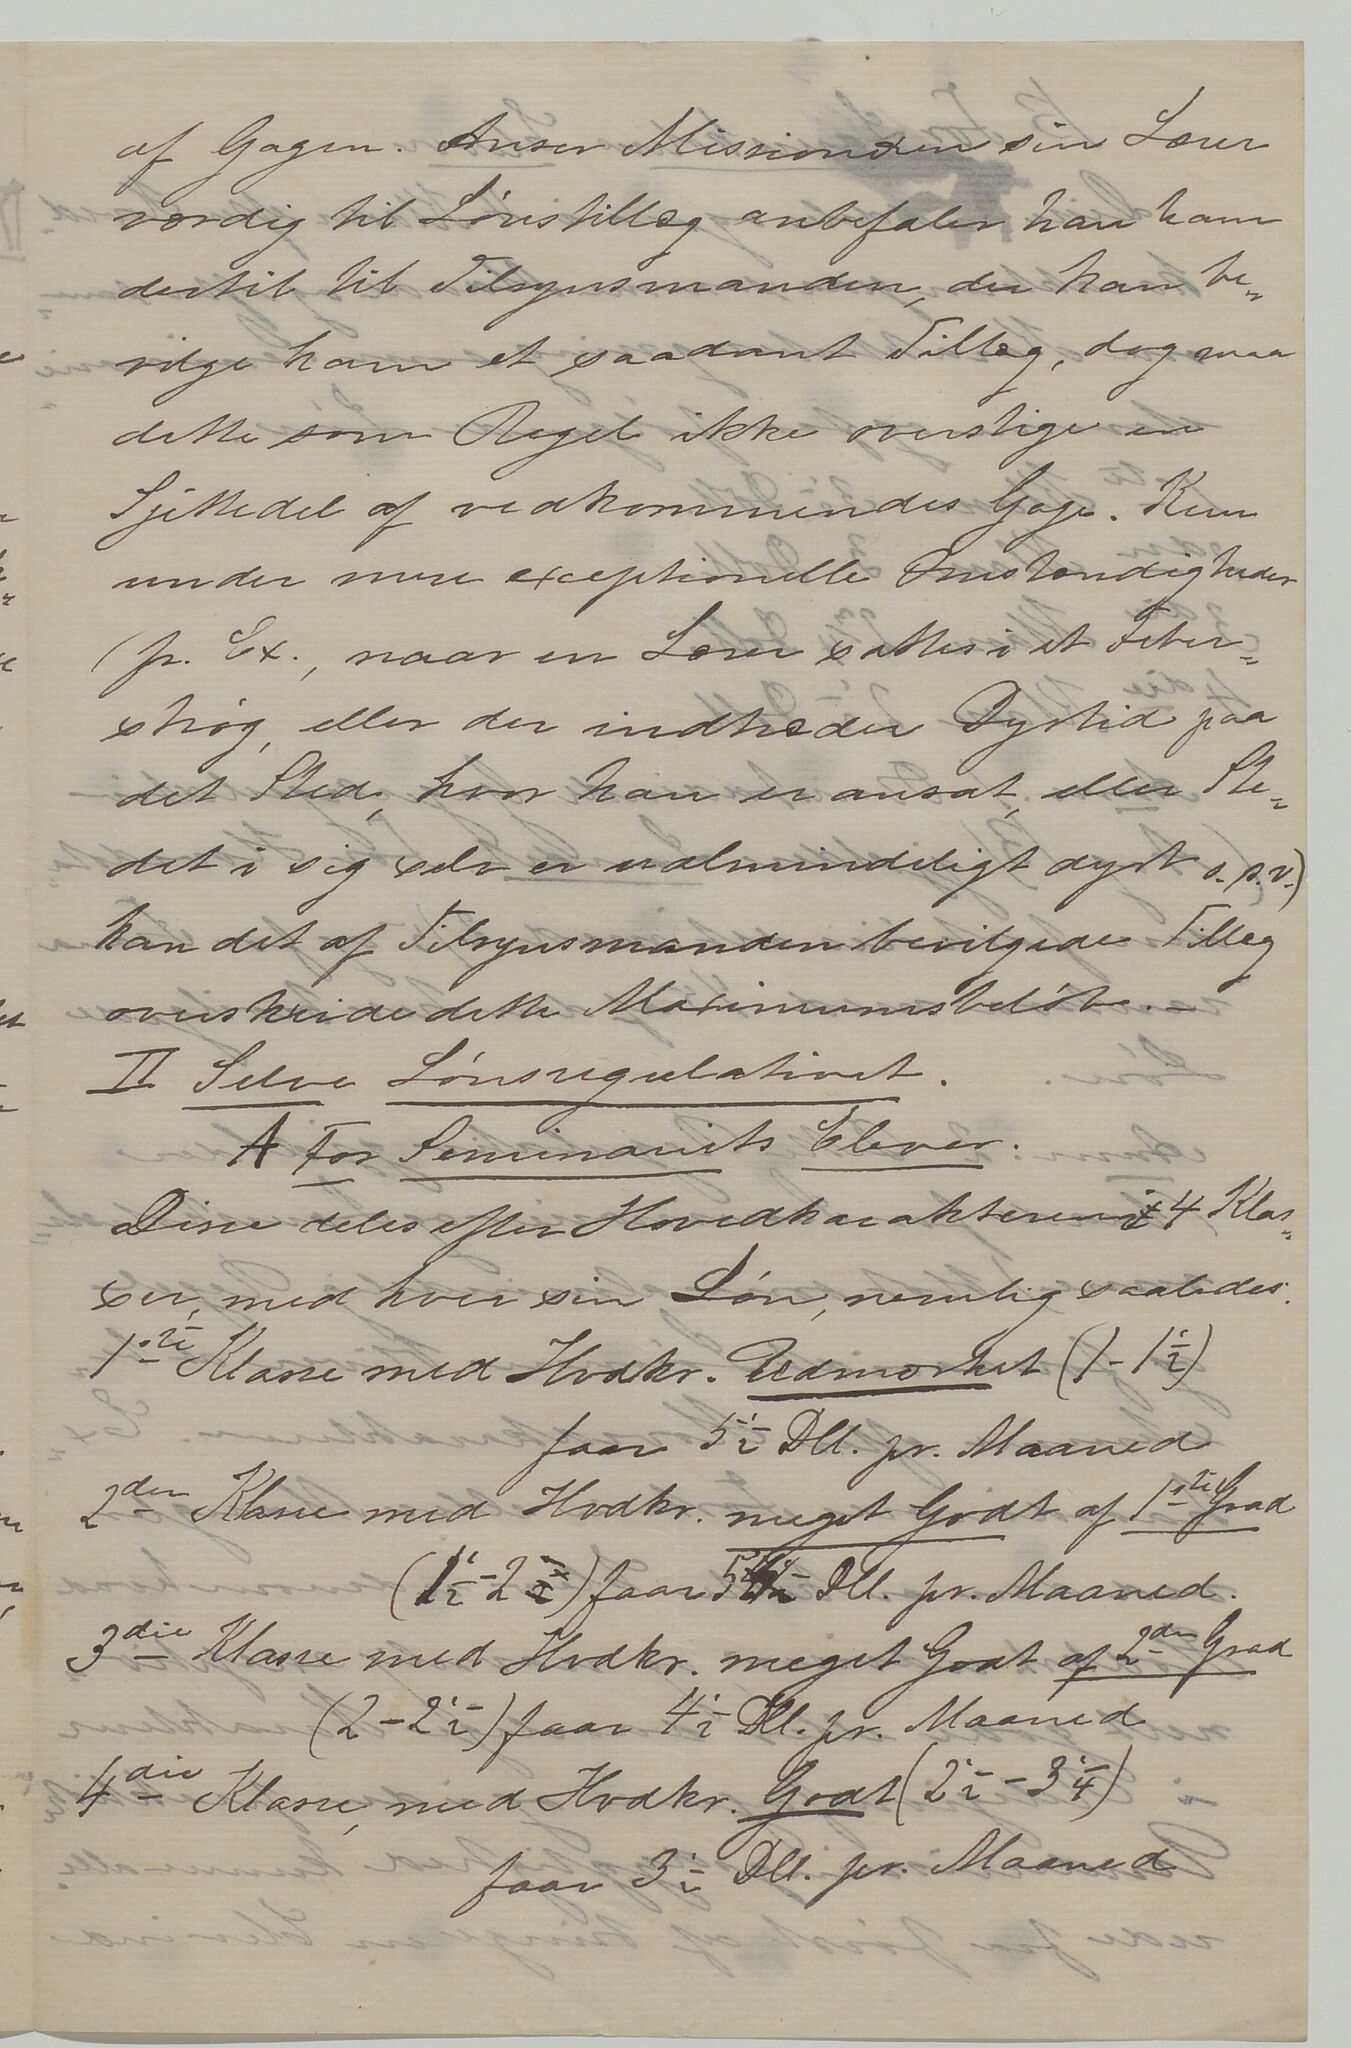 af Gagen. Anser Missionæren sin Lærer
værdig til Lønstillæg anbefaler han ham
dertil til Tilsynsmanden, der kan be„
vilge ham et saadant Tillæg, dog maa
dette som Regel ikke overstige en
Sjettedel af vedkommendes Gage. Kun
under mere exceptionelle Omstændigheder
(fr. Ex., naar en Lærer sættes i et Feber„
strøg, eller der indtræder Dyrtid paa
det Sted, hvor han er ansat, eller Ste„
det i sig selv er ualmindeligt dyrt o.s.v.)
kan det af Tilsynsmanden bevilgede Tillæg
overskride dette Maximumsbeløb. —
II Selve Lønsregulativet.
A For Seminariets Elever.
Disse deles efter Hovedkarakteren i 4 Klas„
ser, med hver sin Løn, nemlig saaledes:
1ste Klasse med Hvdkr. Udmærket (1 - 1½)
faar 5½ Dll. pr. Maaned
2den Klasse med Hvdkr. meget Godt af 1ste Grad
(1½ - 2) faar 5 Dll. pr. Maaned.
3die Klasse med Hvdkr. meget Godt af 2den Grad
(2 – 2½) faar 4½ Dll. pr. Maaned
4die Klasse, med Hvdkr. Godt (2½ – 3¼)
faar 3½ Dll. pr. Maaned